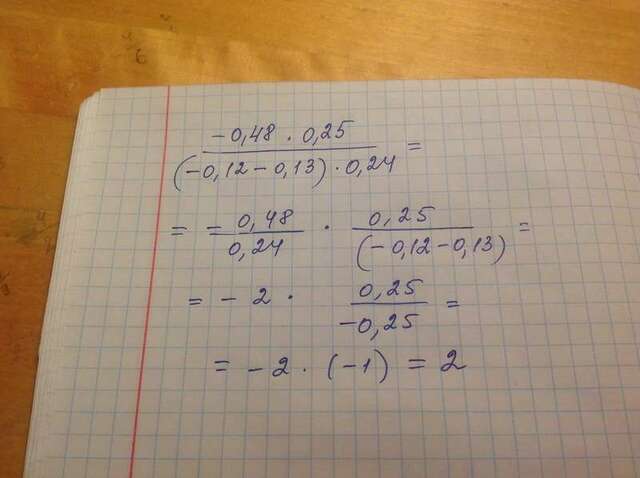 -0,48 · 0,25 / (-0,12 - 0,13) · 0,24 =
= = 0,48 / 0,24 · 0,25 / (-0,12 - 0,13) =
= - 2 · 0,25 / -0,25 =
= - 2 · (-1) = 2